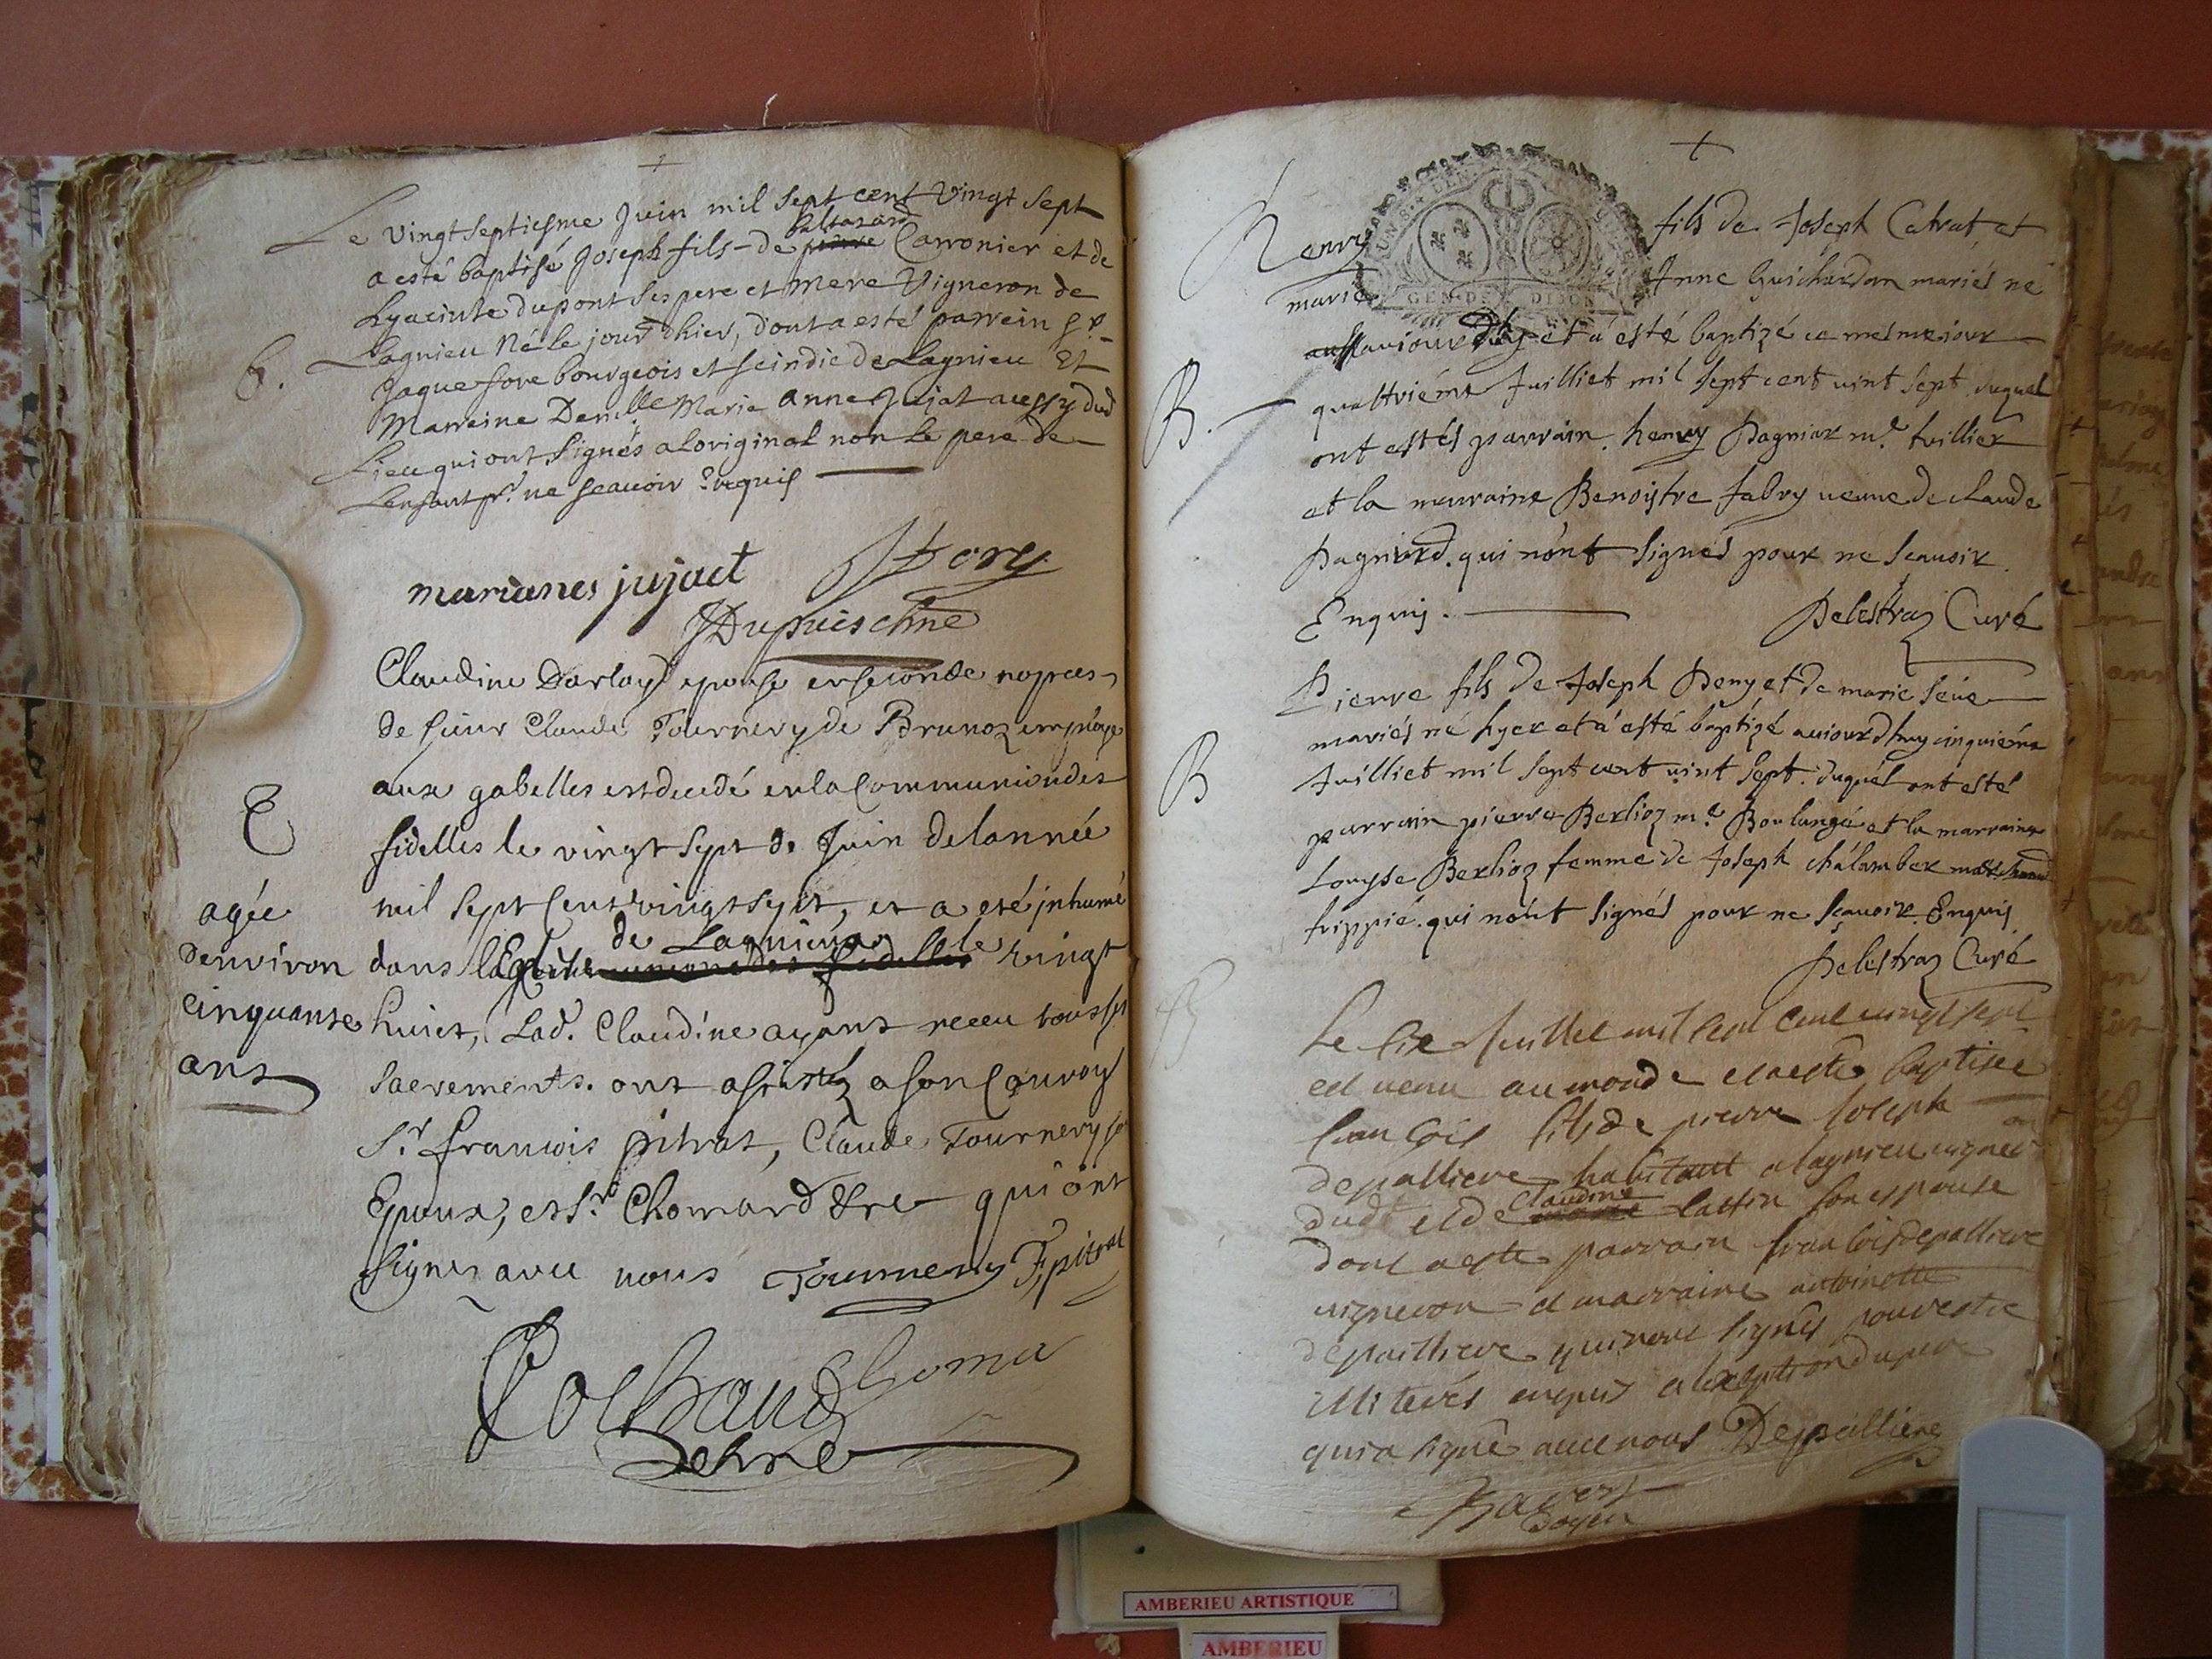 Le vingtseptiesme Juin mil sept cent vingt sept
a esté baptisé Joseph fils de pierre baltasard Carronier et de
Lyacinte dupont ses pere et mere Vigneron de
Lagnieu Né le jour d'hier, dont a esté parrein sr
Jaque fore bourgeois et scindic de Lagnieu Et
B.
Marreine Demlle Marie anne Jujat aussy dud
Lieu qui ont signés a Loriginal non Le pere de
Lenfant pr ne scauoir Enquis
marianes jujact
JFory
JDupuis chne
Claudine Darlay epouse en seconde nopces
de sieur Claude Tournery de Brunoz employe
aux gabelles est decedé en la Communion des
E
fidelles le vingt sept de Juin de lannée
agée
mil sept cent vingt sept, et a eté inhumé
denviron
dans l'Eglise de Lagnieu le vingt
cinquante
huict, Lad. Claudine ayant receu tous ses
ans
sacrements. ont assistéz a son Convoy
Sr. francois pitrat, Claude Tournery son
Epoux, et Sr. Chomard Ptre qui ont
signés avec nous Tournery F, pitrat
Cochaud Choma
Pchne
+
Henry fils de Joseph Catrat et
marie Anne Guichardon mariés né
GEN·DE DIJON
auiourdhuy et a esté baptizé ce mesme iour
B.
quattriéme Juilliet mil sept cent vint sept duquel
ont estés parrain henry Pagniar me. tuillier
et la marraine Benoistre fabry veuve de claude
Pagniard. qui n'ont signés pour ne scauoir
Enquis. Delestraz Curé
Pierre fils de Joseph Deny et de marie séue
mariés né hyer et a esté baptizé auiourdhuy cinquiéme
B
Juilliet mil sept cent vint sept. duquel ont estés
parrain pierre Berlioz me. Boulangé et la marraine
Louyse Berlioz femme de Joseph chálamber marchand
frippié. qui n'ont signés pour ne sçauoir. Enquis
Delestraz Curé
B
Le six Juillet mil sept cent vingt sept
est venu au monde et a esté baptisée
francois fils de pierre Joseph
depalliere habitant a lagnieu vigneron
dudt et de Claudine Lattin son espouse
dont a esté parrain francois depalliere
vigneron et marraine antoinette
depailliere qui nont signés pour estre
illiterés enquis a lexception du pere
qui a signé auec nous Depalliere
doyen
AMBERIEU ARTISTIQUE
AMBERIEU